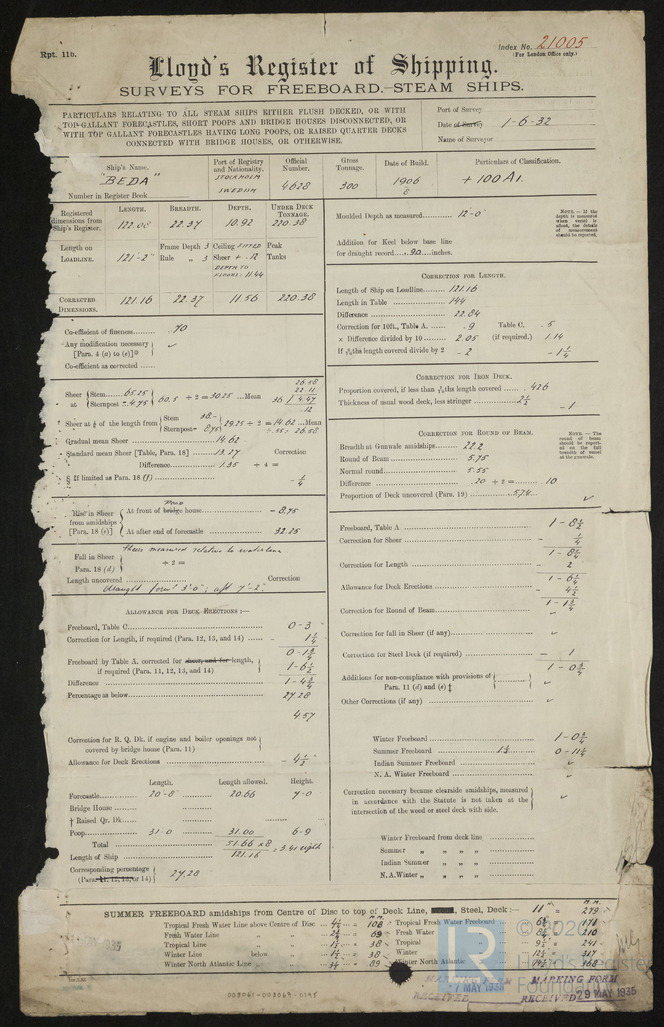 Rpt. 11b.
Index No. 21005
(For London Office only.)
Lloyd's Register of Shipping.
SURVEYS FOR FREEBOARD.—STEAM SHIPS.
PARTICULARS RELATING TO ALL STEAM SHIPS EITHER FLUSH DECKED, OR WITH
TOP-GALLANT FORECASTLES, SHORT POOPS AND BRIDGE HOUSES DISCONNECTED, OR
WITH TOP GALLANT FORECASTLES HAVING LONG POOPS, OR RAISED QUARTER DECKS
CONNECTED WITH BRIDGE HOUSES, OR OTHERWISE.
Port of Survey
Date of Survey 1-6-32
Name of Surveyor
Ship's Name. Port of Registry and Nationality. Official Number. Gross Tonnage. Date of Build. Particulars of Classification.
"BEDA" STOCKHOLM SWEDEN 4628 300 1906 8 + 100A1.
Number in Register Book
LENGTH. BREADTH. DEPTH. UNDER DECK TONNAGE.
Registered dimensions from Ship's Register. 122.08 22.37 10.92 220.38
Length on LOADLINE. 121-2" Frame Depth 3 Ceiling FITTED Peak
Rule „ 3 Sheer + .12 Tanks
DEPTH TO FLOORS: 11.44
CORRECTED DIMENSIONS. 121.16 22.37 11.56 220.38
Co-efficient of fineness......... .70
Any modification necessary
[Para. 4 (a) to (e)]
Co-efficient as corrected ......
Sheer at { Stem......65.25 Sternpost -4.75 } 60.5 ÷ 2 = 30.25 ...Mean
26.58
22.11
36 / 4.47
.12
Sheer at ⅛ of the length from { Stem 38.- Sternpost- 8.75 } 29.25 ÷ 2 = 14.62 ...Mean
.55 = 26.58
Gradual mean Sheer 14.62
Standard mean Sheer [Table, Para. 18] 13.27 Correction
Difference 1.35 ÷ 4 =
§ If limited as Para. 18 (f) - ¼
Rise in Sheer from amidships [Para. 18 (e)]
At front of bridge house - 8.75
At after end of forecastle 32.25
Fall in Sheer
Para. 18 (d) ÷ 2 =
these measured relative to waterline
Length uncovered Correction
draught forwd 3'-0"; aft 7'-2"
ALLOWANCE FOR DECK ERECTIONS :—
Freeboard, Table C 0-3
Correction for Length, if required (Para. 12, 13, and 14) - 1¼
0-1¾
Freeboard by Table A. corrected for sheer, and for length, if required (Para. 11, 12, 13, and 14) 1-6½
Difference 1-4¾
Percentage as below 27.28
4.57
Correction for R. Q. Dk. if engine and boiler openings not covered by bridge house (Para. 11)
Allowance for Deck Erections - 4½
Length. Length allowed. Height.
Forecastle 20-8" 20.66 7-0
Bridge House
† Raised Qr. Dk.
Poop 31-0 31.00 6-9
Total 51.66 x8
Length of Ship 121.16 = 3.41 eighth
Corresponding percentage (Para. 11, 12, 13, or 14) 27.28
Moulded Depth as measured 12-0"
NOTE.—If the depth is measured when vessel is afloat, the details of measurement should be reported.
Addition for Keel below base line
for draught record .90 inches.
CORRECTION FOR LENGTH.
Length of Ship on Loadline 121.16
Length in Table 144
Difference 22.84
Correction for 10ft., Table A. .9 Table C. .5
× Difference divided by 10 2.05 (if required.) 1.14
If 6/10ths length covered divide by 2 - 2 - 1¼
CORRECTION FOR IRON DECK.
Proportion covered, if less than 7/10ths length covered .426
Thickness of usual wood deck, less stringer 2½ - 1
CORRECTION FOR ROUND OF BEAM.
NOTE.—The round of beam should be reported on the full breadth of vessel at the gunwale.
Breadth at Gunwale amidships 22.2
Round of Beam 5.75
Normal round 5.55
Difference .20 ÷ 2 = .10
Proportion of Deck uncovered (Para. 19) .574
Freeboard, Table A 1-8½
Correction for Sheer ¼
1-8¼
Correction for Length - 2
1-6¼
Allowance for Deck Erections - 4½
1-1¾
Correction for Round of Beam
Correction for fall in Sheer (if any)
Correction for Steel Deck (if required) - 1
1-0¾
Additions for non-compliance with provisions of Para. 11 (d) and (e) ‡
Other Corrections (if any)
Winter Freeboard 1-0¾
Summer Freeboard 1½ 0-11¼
Indian Summer Freeboard
N. A. Winter Freeboard
Correction necessary because clearside amidships, measured in accordance with the Statute is not taken at the intersection of the wood or steel deck with side.
Winter Freeboard from deck line
Summer „ „ „ „
Indian Summer „ „ „
N.A. Winter „ „ „ „
SUMMER FREEBOARD amidships from Centre of Disc to top of Deck Line, Steel, Deck :— 11 = 279
Tropical Fresh Water Line above Centre of Disc 4¼ = 108 Tropical Fresh Water Freeboard 6¾ = 171
Fresh Water Line 2¾ = 69 Fresh Water 8¼ = 210
Tropical Line 1½ = 38 Tropical 9½ = 241
Winter Line below 1½ = 38 Winter 12½ = 317
Winter North Atlantic Line 3½ = 89 Winter North Atlantic 14½ = 368
© 2020
LR
Lloyd's Register
Foundation
MAY 1935
RECEIVED 7 MAY 1935
MARKING FORM
RECEIVED 29 MAY 1935
003061-003069-0195